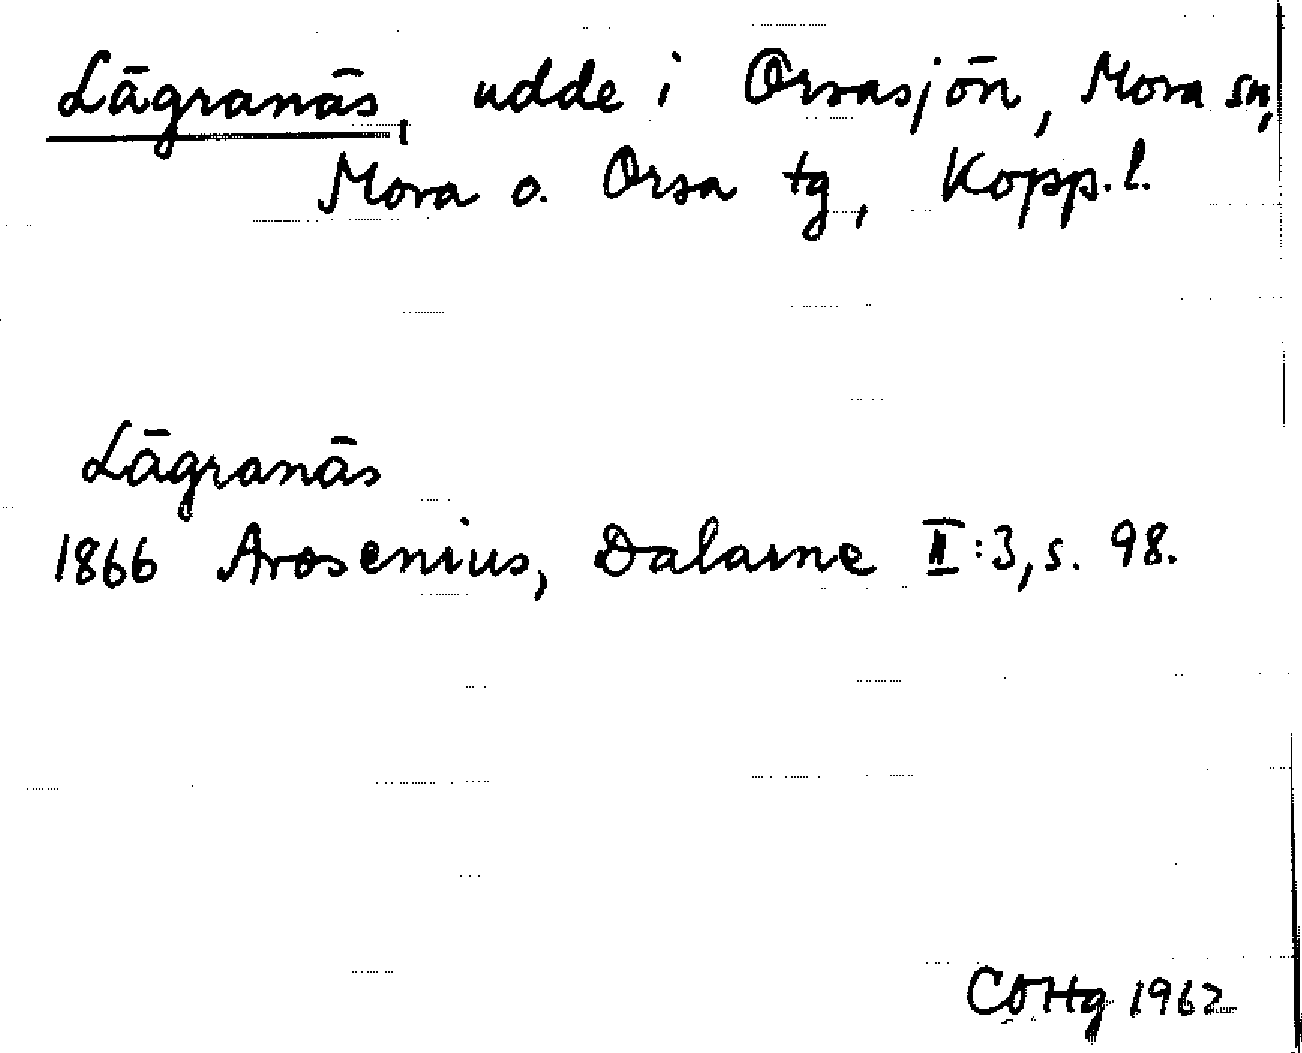 Lägranäs, udde i Orsasjön, Mora sn,
Mora o. Orsa tg, Kopp. l.
Lägranäs
1866 Arosenius, Dalarne II:3, s. 98.
COHg 1962